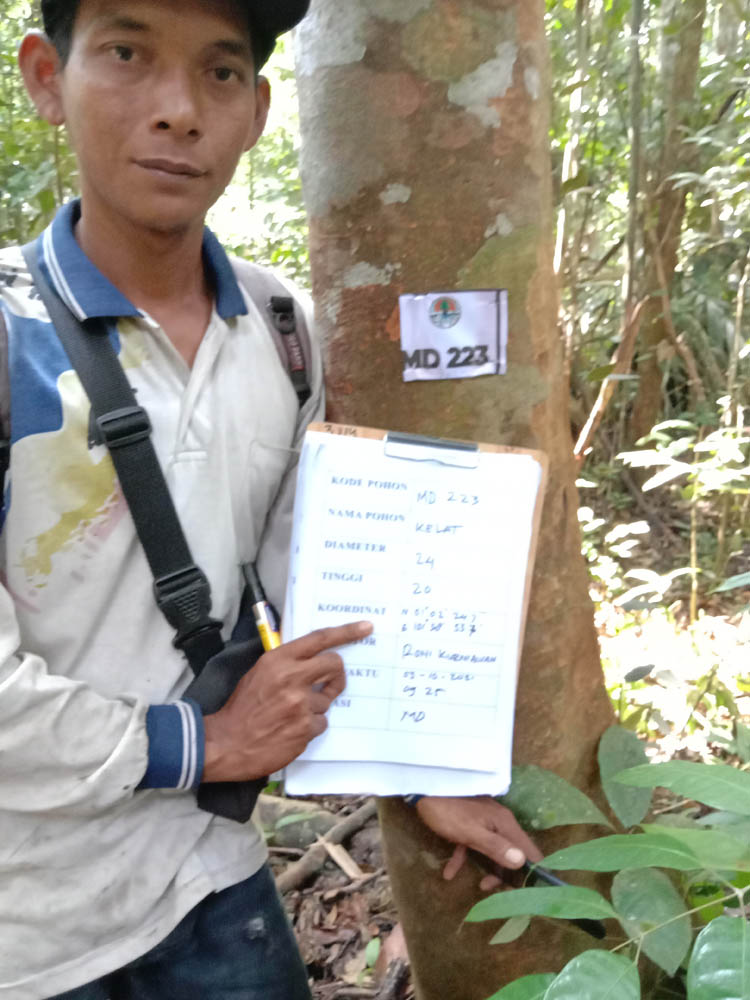 MD 223
KODE POHON MD 223
NAMA POHON KELAT
DIAMETER 24
TINGGI 20
KOORDINAT N 01° 02' 24,
E 101° 38'
KURNIAWAN
AKTU 03-10-2021
09 25
ASI MD